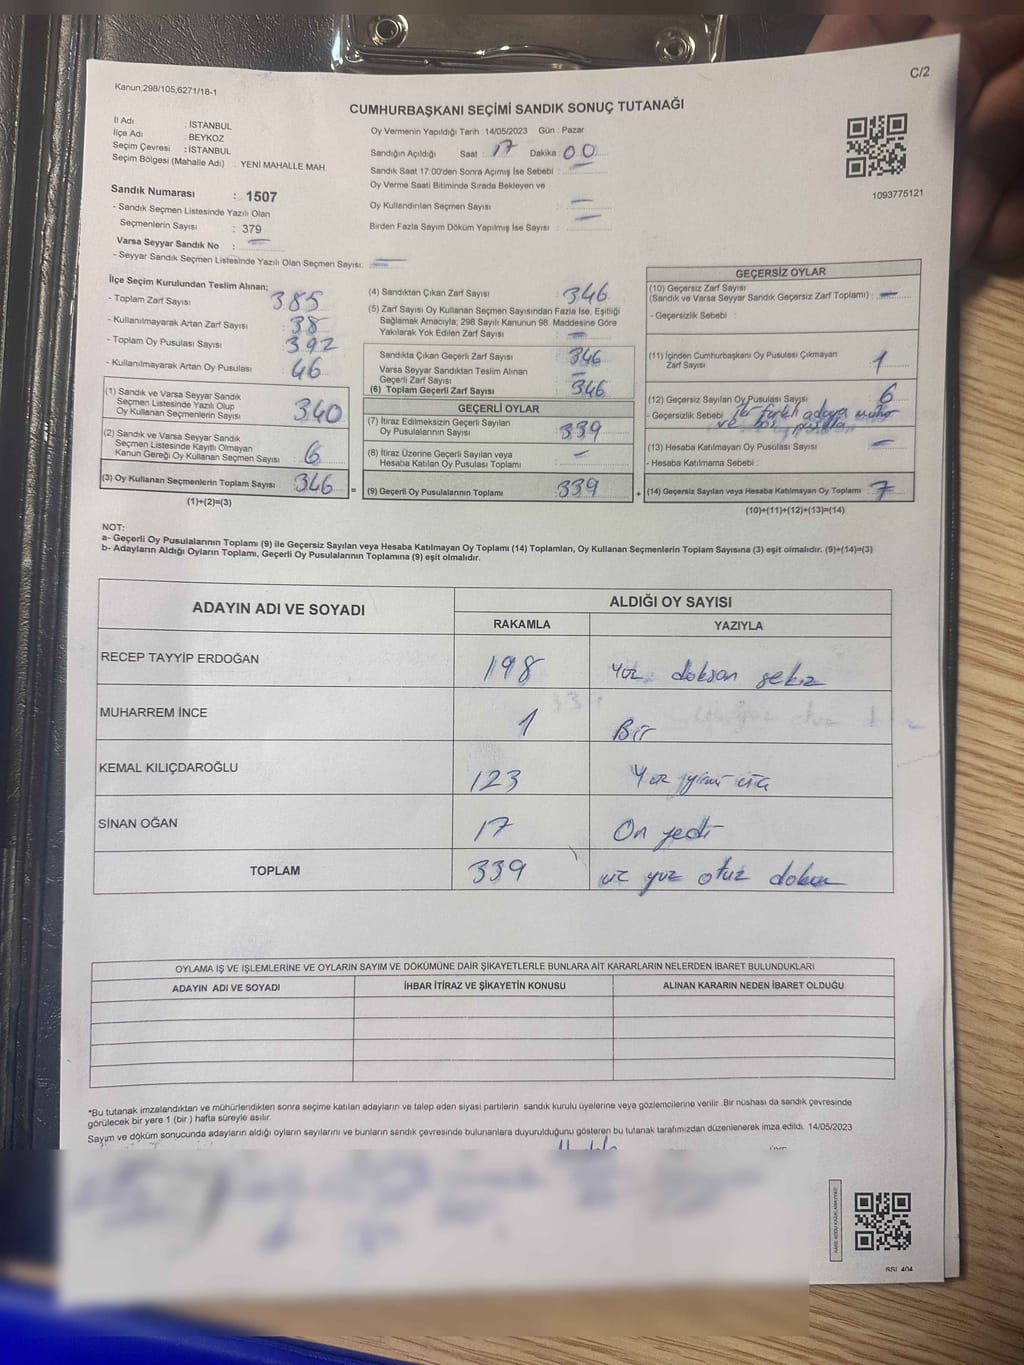 C/2
Kanun;298/105;6271/18-1
CUMHURBAŞKANI SEÇİMİ SANDIK SONUÇ TUTANAĞI
İl Adı : İSTANBUL
İlçe Adı : BEYKOZ
Seçim Çevresi : İSTANBUL
Seçim Bölgesi (Mahalle Adı) : YENİ MAHALLE MAH
Sandık Numarası : 1507
- Sandık Seçmen Listesinde Yazılı Olan
Seçmenlerin Sayısı : 379
Varsa Seyyar Sandık No : —
- Seyyar Sandık Seçmen Listesinde Yazılı Olan Seçmen Sayısı: —
Oy Vermenin Yapıldığı Tarih : 14/05/2023 Gün : Pazar
Sandığın Açıldığı Saat : 17 Dakika : 00
Sandık Saat 17:00'den Sonra Açımış İse Sebebi : —
Oy Verme Saati Bitiminde Sırada Bekleyen ve
Oy Kullendırılan Seçmen Sayısı : —
Birden Fazla Sayım Döküm Yapılmış İse Sayısı : —
1093775121
İlçe Seçim Kurulundan Teslim Alınan;
- Toplam Zarf Sayısı : 385
- Kullanılmayarak Artan Zarf Sayısı : 38
- Toplam Oy Pusulası Sayısı : 392
- Kullanılmayarak Artan Oy Pusulası : 46
(1) Sandık ve Varsa Seyyar Sandık
Seçmen Listesinde Yazılı Olup
Oy Kullanan Seçmenlerin Sayısı : 340
(2) Sandık ve Varsa Seyyar Sandık
Seçmen Listesinde Kayıtlı Olmayan
Kanun Gereği Oy Kullanan Seçmen Sayısı : 6
(3) Oy Kullanan Seçmenlerin Toplam Sayısı : 346
(1)+(2)=(3)
(4) Sandıktan Çıkan Zarf Sayısı : 346
(5) Zarf Sayısı Oy Kullanan Seçmen Sayısından Fazla İse, Eşitliği
Sağlamak Amacıyla; 298 Sayılı Kanunun 98. Maddesine Göre
Yakılarak Yok Edilen Zarf Sayısı : —
Sandıkta Çıkan Geçerli Zarf Sayısı : 346
Varsa Seyyar Sandıktan Teslim Alınan
Geçerli Zarf Sayısı : —
(6) Toplam Geçerli Zarf Sayısı : 346
GEÇERLİ OYLAR
(7) İtiraz Edilmeksizin Geçerli Sayılan
Oy Pusulalarının Sayısı : 339
(8) İtiraz Üzerine Geçerli Sayılan veya
Hesaba Katılan Oy Pusulası Toplamı : —
= (9) Geçerli Oy Pusulalarının Toplamı : 339
GEÇERSİZ OYLAR
(10) Geçersiz Zarf Sayısı
(Sandık ve Varsa Seyyar Sandık Geçersiz Zarf Toplamı) : —
- Geçersizlik Sebebi :
(11) İçinden Cumhurbaşkanı Oy Pusulası Çıkmayan
Zarf Sayısı : 1
(12) Geçersiz Sayılan Oy Pusulası Sayısı : 6
- Geçersizlik Sebebi : iki farklı adaya mühür
ve boş pusula
(13) Hesaba Katılmayan Oy Pusulası Sayısı : —
- Hesaba Katılmama Sebebi :
+ (14) Geçersiz Sayılan veya Hesaba Katılmayan Oy Toplamı : 7
(10)+(11)+(12)+(13)=(14)
NOT:
a- Geçerli Oy Pusulalarının Toplamı (9) ile Geçersiz Sayılan veya Hesaba Katılmayan Oy Toplamı (14) Toplamları, Oy Kullanan Seçmenlerin Toplam Sayısına (3) eşit olmalıdır. (9)+(14)=(3)
b- Adayların Aldığı Oyların Toplamı, Geçerli Oy Pusulalarının Toplamına (9) eşit olmalıdır.
ADAYIN ADI VE SOYADI ALDIĞI OY SAYISI
RAKAMLA YAZIYLA
RECEP TAYYİP ERDOĞAN 198 Yüz doksan sekiz
MUHARREM İNCE 1 Bir
KEMAL KILIÇDAROĞLU 123 Yüz yirmi üç
SİNAN OĞAN 17 On yedi
TOPLAM 339 üç yüz otuz dokuz
OYLAMA İŞ VE İŞLEMLERİNE VE OYLARIN SAYIM VE DÖKÜMÜNE DAİR ŞİKAYETLERLE BUNLARA AİT KARARLARIN NELERDEN İBARET BULUNDUKLARI
ADAYIN ADI VE SOYADI İHBAR İTİRAZ VE ŞİKAYETİN KONUSU ALINAN KARARIN NEDEN İBARET OLDUĞU
*Bu tutanak imzalandıktan ve mühürlendikten sonra seçime katılan adayların ve talep eden siyasi partilerin sandık kurulu üyelerine veya gözlemcilerine verilir .Bir nüshası da sandık çevresinde
görülecek bir yere 1 (bir ) hafta süreyle asılır.
Sayım ve döküm sonucunda adayların aldığı oyların sayılarını ve bunların sandık çevresinde bulunanlara duyurulduğunu gösteren bu tutanak tarafımızdan düzenlenerek imza edildi. 14/05/2023